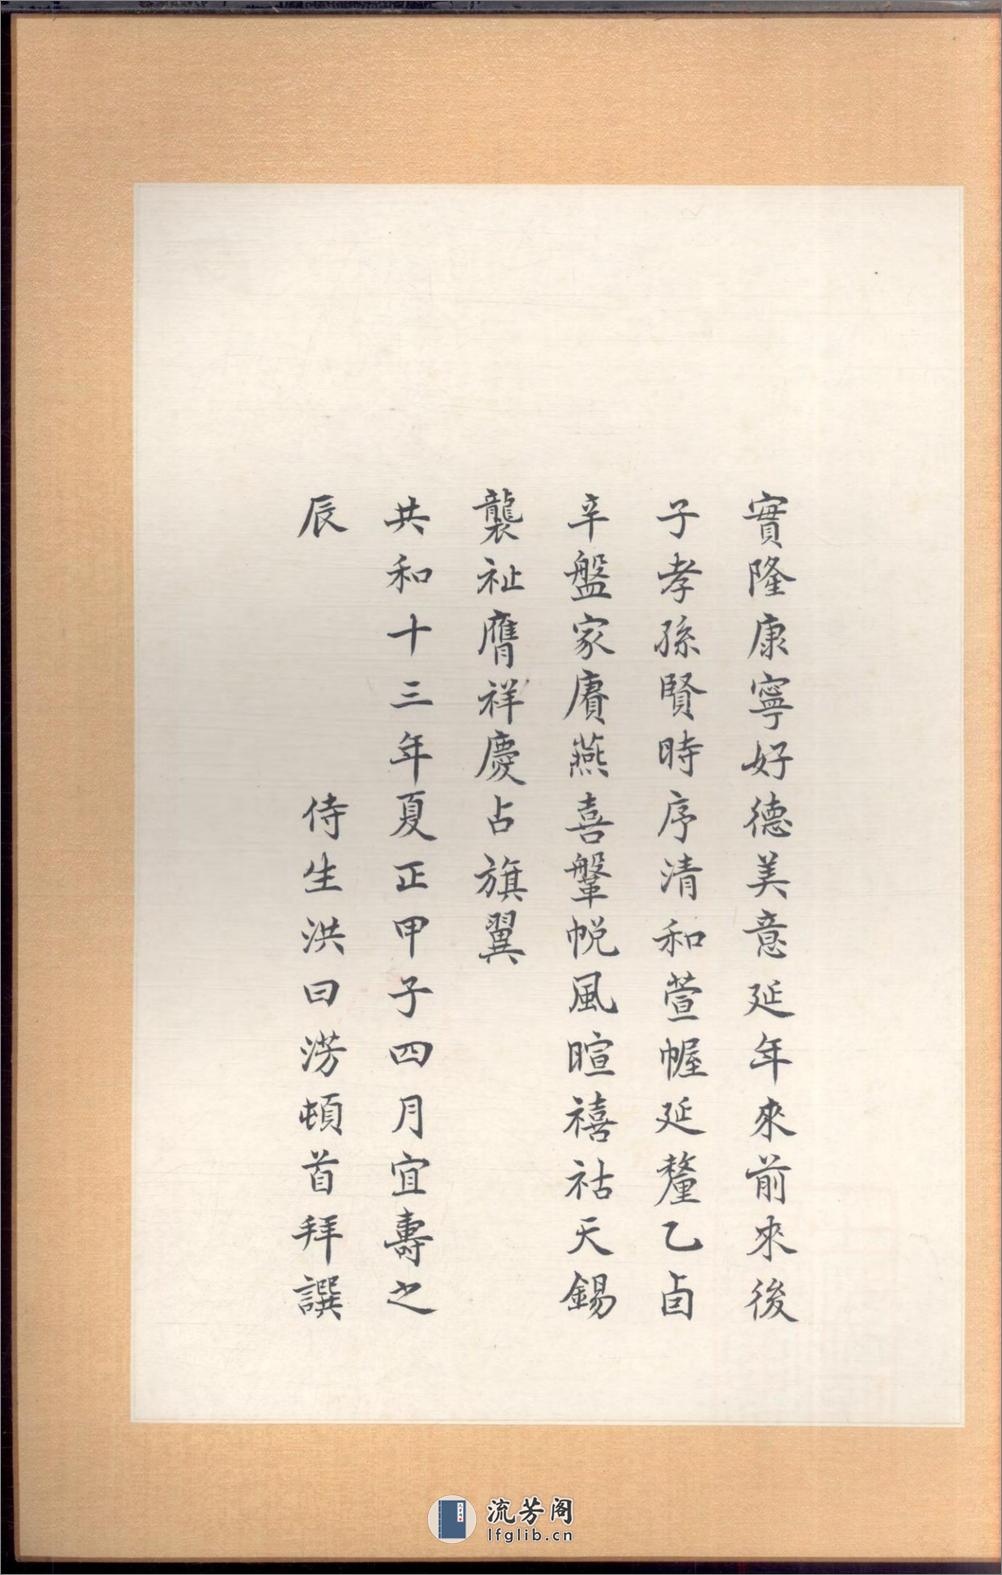 實隆康寧好德美意延年來前來後
子孝孫賢時序清和萱幄延釐乙卣
辛盤家賡燕喜鞶帨風暄禧祜天錫
襲祉膺祥慶占旗翼
共和十三年夏正甲子四月宜壽之
辰　侍生洪曰淓頓首拜譔
流芳阁
lfglib.cn